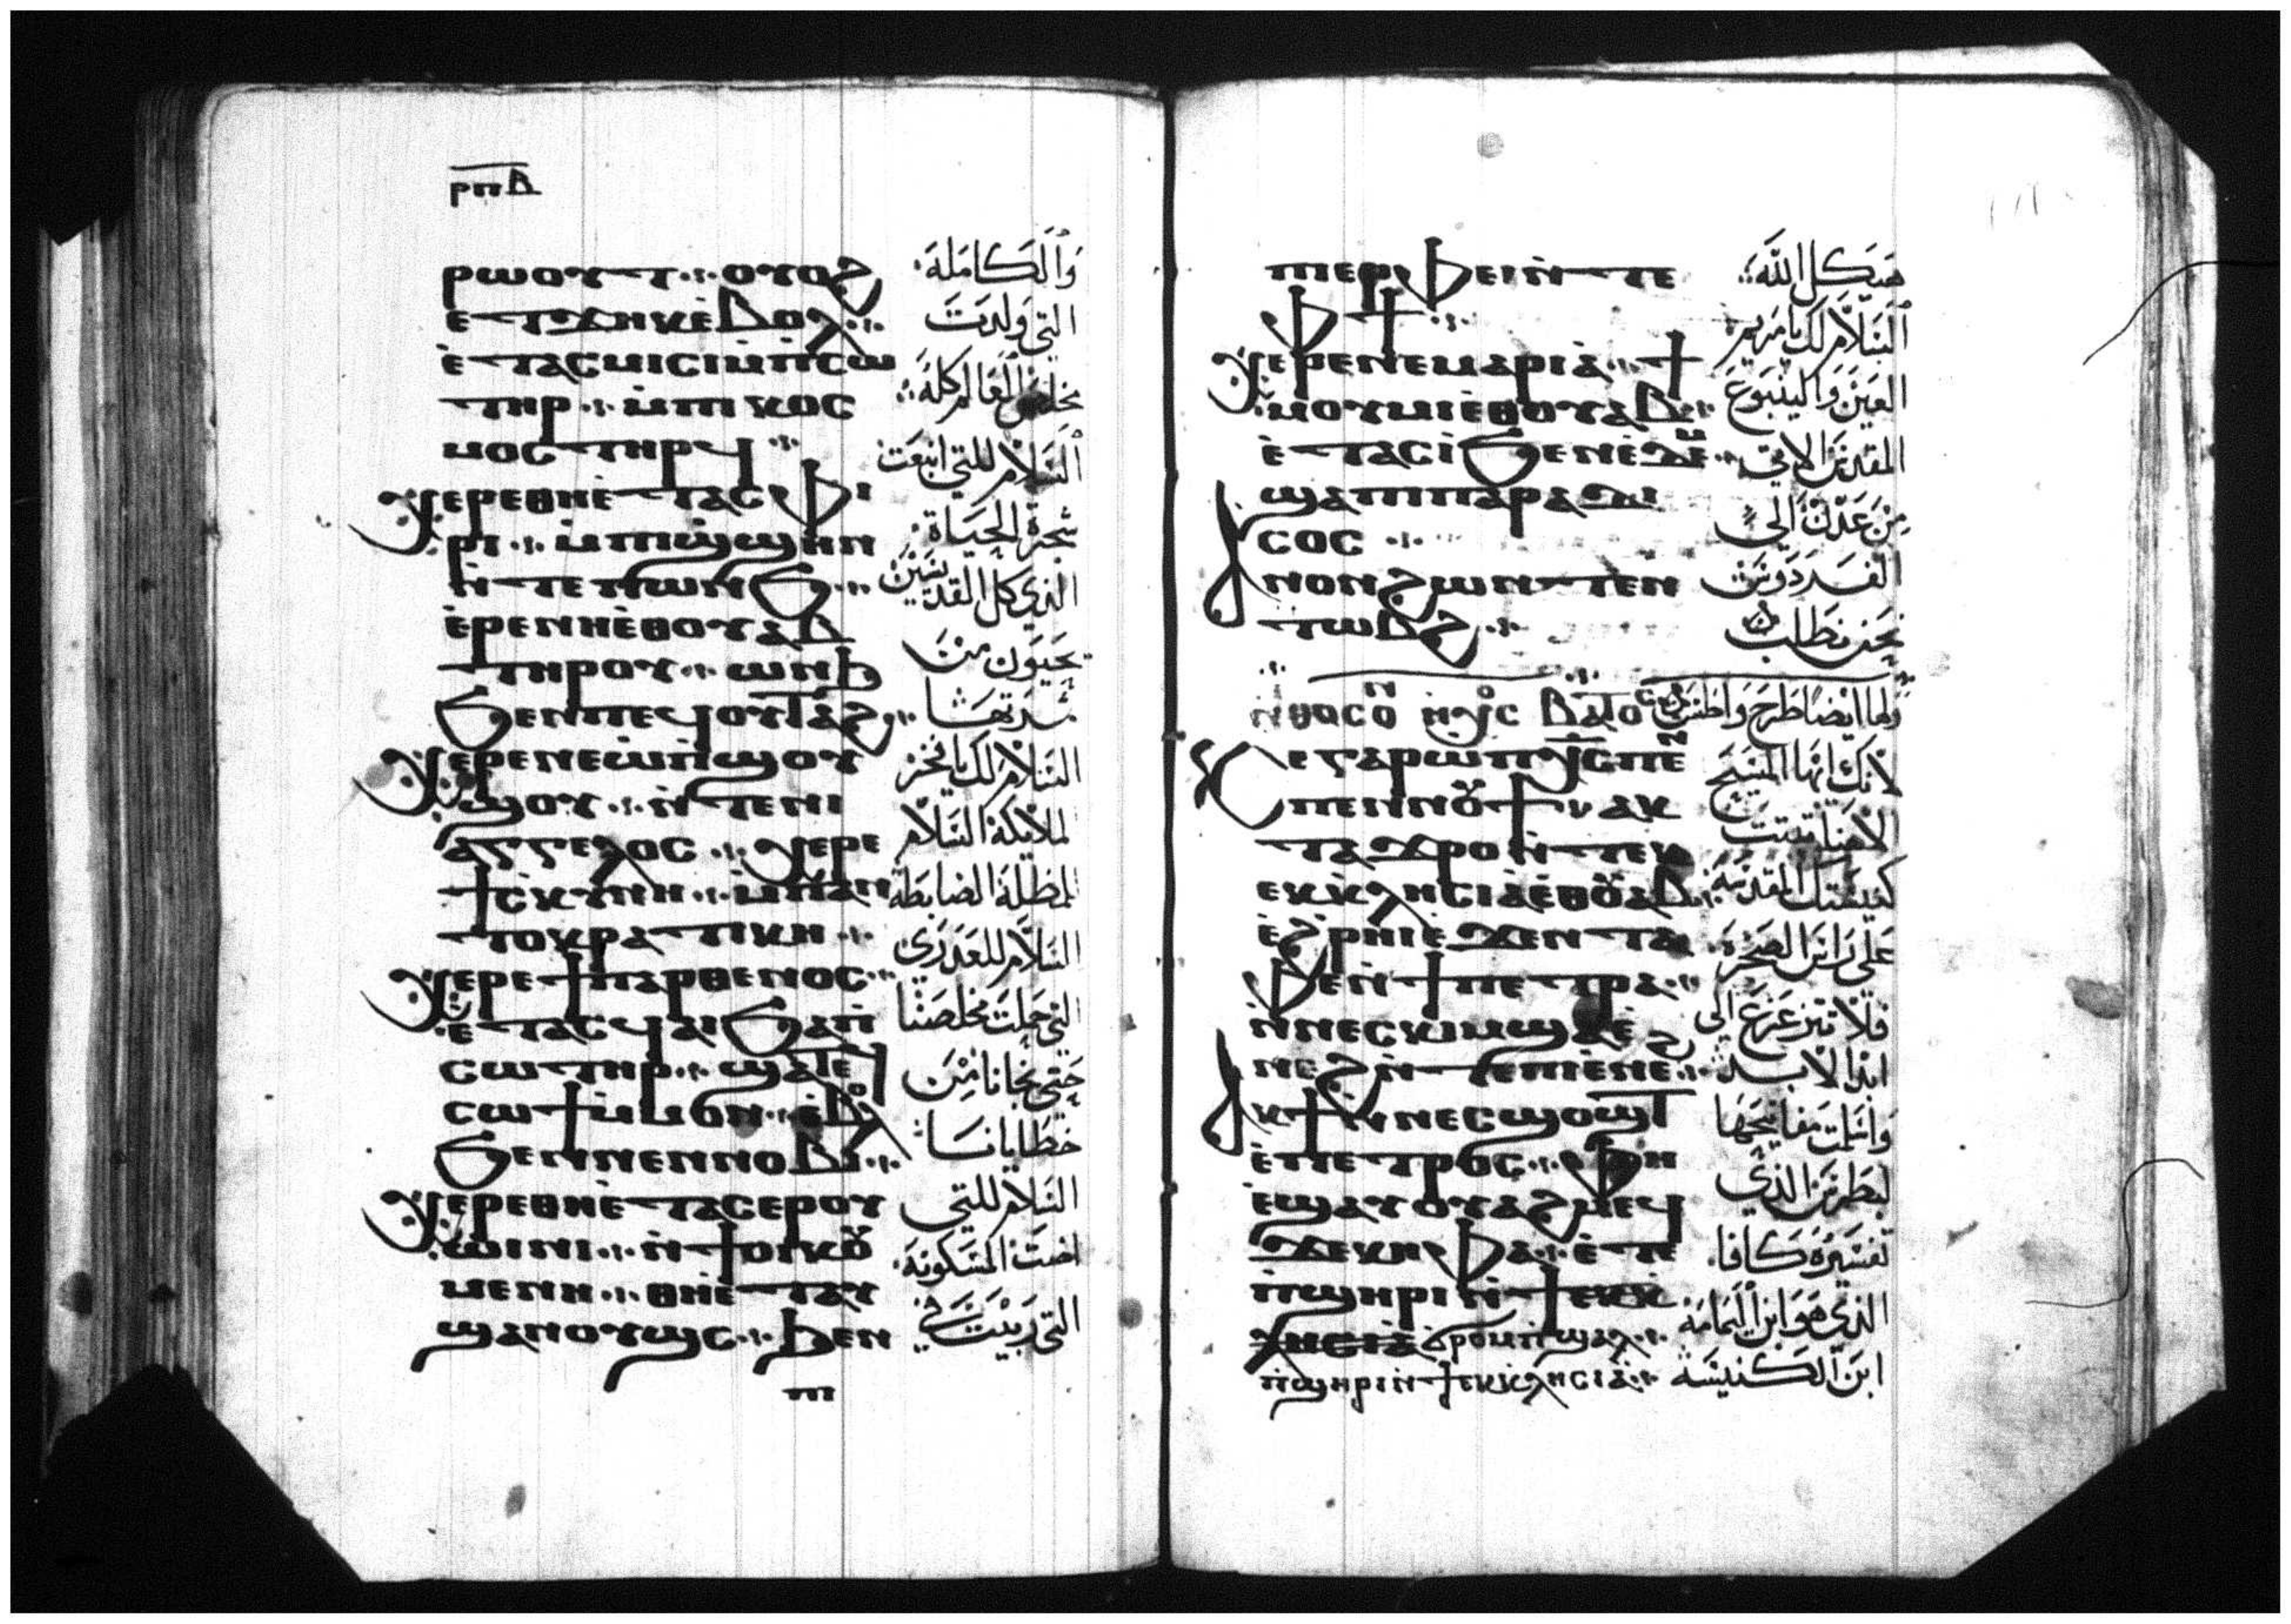 ⲣⲡⲃ
ⲣⲱⲟⲩⲧ ⲟⲩⲟϩ
ⲉⲧϫⲏⲕ ⲉⲃⲟⲗ
ⲉⲧⲁⲥⲙⲓⲥⲓ ⲙⲡⲥⲱ
ⲧⲏⲣ ⲙⲡⲓⲕⲟⲥ
ⲙⲟⲥ ⲧⲏⲣϥ
ⲭⲉⲣⲉ ⲑⲏⲉⲧⲁⲥⲫⲓ
ⲣⲓ ⲙⲡⲓϣϣⲏⲛ
ⲛⲧⲉ ⲡⲱⲛϧ
ⲉⲣⲉ ⲛⲏⲉⲑⲟⲩⲁⲃ
ⲧⲏⲣⲟⲩ ⲱⲛϧ
ϧⲉⲛ ⲡⲉϥⲟⲩⲧⲁϩ
ⲭⲉⲣⲉ ⲛⲉ ⲱ ⲡϣⲟⲩ
ϣⲟⲩ ⲛⲧⲉ ⲛⲓ
ⲁⲅⲅⲉⲗⲟⲥ ⲭⲉⲣⲉ
ϯⲥⲕⲩⲛⲏ ⲙⲡⲁⲛ
ⲧⲟⲕⲣⲁⲧⲓⲕⲏ
ⲭⲉⲣⲉ ϯⲡⲁⲣⲑⲉⲛⲟⲥ
ⲉⲧⲁⲥϥⲁⲓ ϧⲁ ⲡ
ⲥⲱⲧⲏⲣ ϣⲁⲧⲉϥ
ⲥⲱϯ ⲙⲙⲟⲛ ⲉⲃⲟⲗ
ϧⲉⲛ ⲛⲉⲛⲛⲟⲃⲓ
ⲭⲉⲣⲉ ⲑⲏⲉⲧⲁⲥⲉⲣⲟⲩ
ⲱⲓⲛⲓ ⲛϯⲟⲓⲕⲟⲩ
ⲙⲉⲛⲏ ⲑⲏⲉⲧⲁⲩ
ϣⲁⲛⲟⲩϣⲥ ϧⲉⲛ
ⲡⲓ
والكاملة
التي ولدت
مخلص العالم كله
السلام للتي انبعت
شجرة الحياة
الذي كل القديسين
يحيون من
ثمرتها
السلام لك يا فخر
الملايكة السلام
للمظلة الضابطة
السلام للعدري
التي حملت مخلصنا
حتى نجانا من
خطايانا
السلام للتي
اضت المسكونة
التي ربيت في
ⲡⲓⲉⲣⲫⲉⲓ ⲛⲧⲉ
ⲫϯ
ⲭⲉⲣⲉ ⲛⲉ ⲙⲁⲣⲓⲁ ϯ
ⲙⲟⲩⲙⲓ ⲉⲑⲟⲩⲁⲃ
ⲉⲧⲁⲥⲓ ϧⲉⲛ ⲉⲇⲉⲙ
ϣⲁ ⲡⲓⲡⲁⲣⲁⲇⲓ
ⲥⲟⲥ
ⲁⲛⲟⲛ ϩⲱⲛ ⲧⲉⲛ
ⲧⲱⲃϩ
ⲛⲑⲟⲥ ⲟⲛ ⲏⲭⲟⲥ ⲃⲁⲧⲟⲥ
ⲉ ⲅⲁⲣ ⲱ ⲡⲭⲥ ⲡⲉⲛ
ⲡⲉⲛⲛⲟⲩϯ ⲁⲕ
ⲧⲁϫⲣⲟ ⲛⲧⲉⲕ
ⲉⲕⲕⲗⲏⲥⲓⲁ ⲉⲑⲟⲩⲁⲃ
ⲉϩⲣⲏⲓ ⲉϫⲉⲛ ⲧⲁ
ⲫⲉ ⲛϯⲡⲉⲧⲣⲁ
ⲛⲛⲉⲥⲕⲓⲙ ϣⲁ ⲉ
ⲛⲉϩ ⲛⲧⲉ ⲡⲓⲉⲛⲉϩ
ⲁⲕϯ ⲛⲛⲉⲥϣⲟϣⲧ
ⲉⲡⲉⲧⲣⲟⲥ ⲫⲏ
ⲉϣⲁⲩⲟⲩⲁϩⲙⲉϥ
ϫⲉ ⲕⲏⲫⲁ ⲉⲧⲉ
ⲡϣⲏⲣⲓ ⲛϯⲉⲕⲕ
ⲗⲏⲥⲓⲁ ϭⲣⲟⲙⲡϣⲁⲗ
ⲡϣⲏⲣⲓ ⲛϯⲉⲕⲕⲗⲏⲥⲓⲁ
هيكل الله
السلام لك يا مريم
العين والينبوع
المقدس الاتي
من عدن الى
الفردوس
نحن نطلب
ولها ايضا طرح واطس
لانك ايها المسيح
الاهنا ثبت
كنيستك المقدسة
على راس الصخرة
فلا تتزعزع الى
ابد الابد
واسلمت مفاتيحها
لبطرس الذي
تفسيره كافا
الذي هو ابن اليمامة
ابن الكنيسة